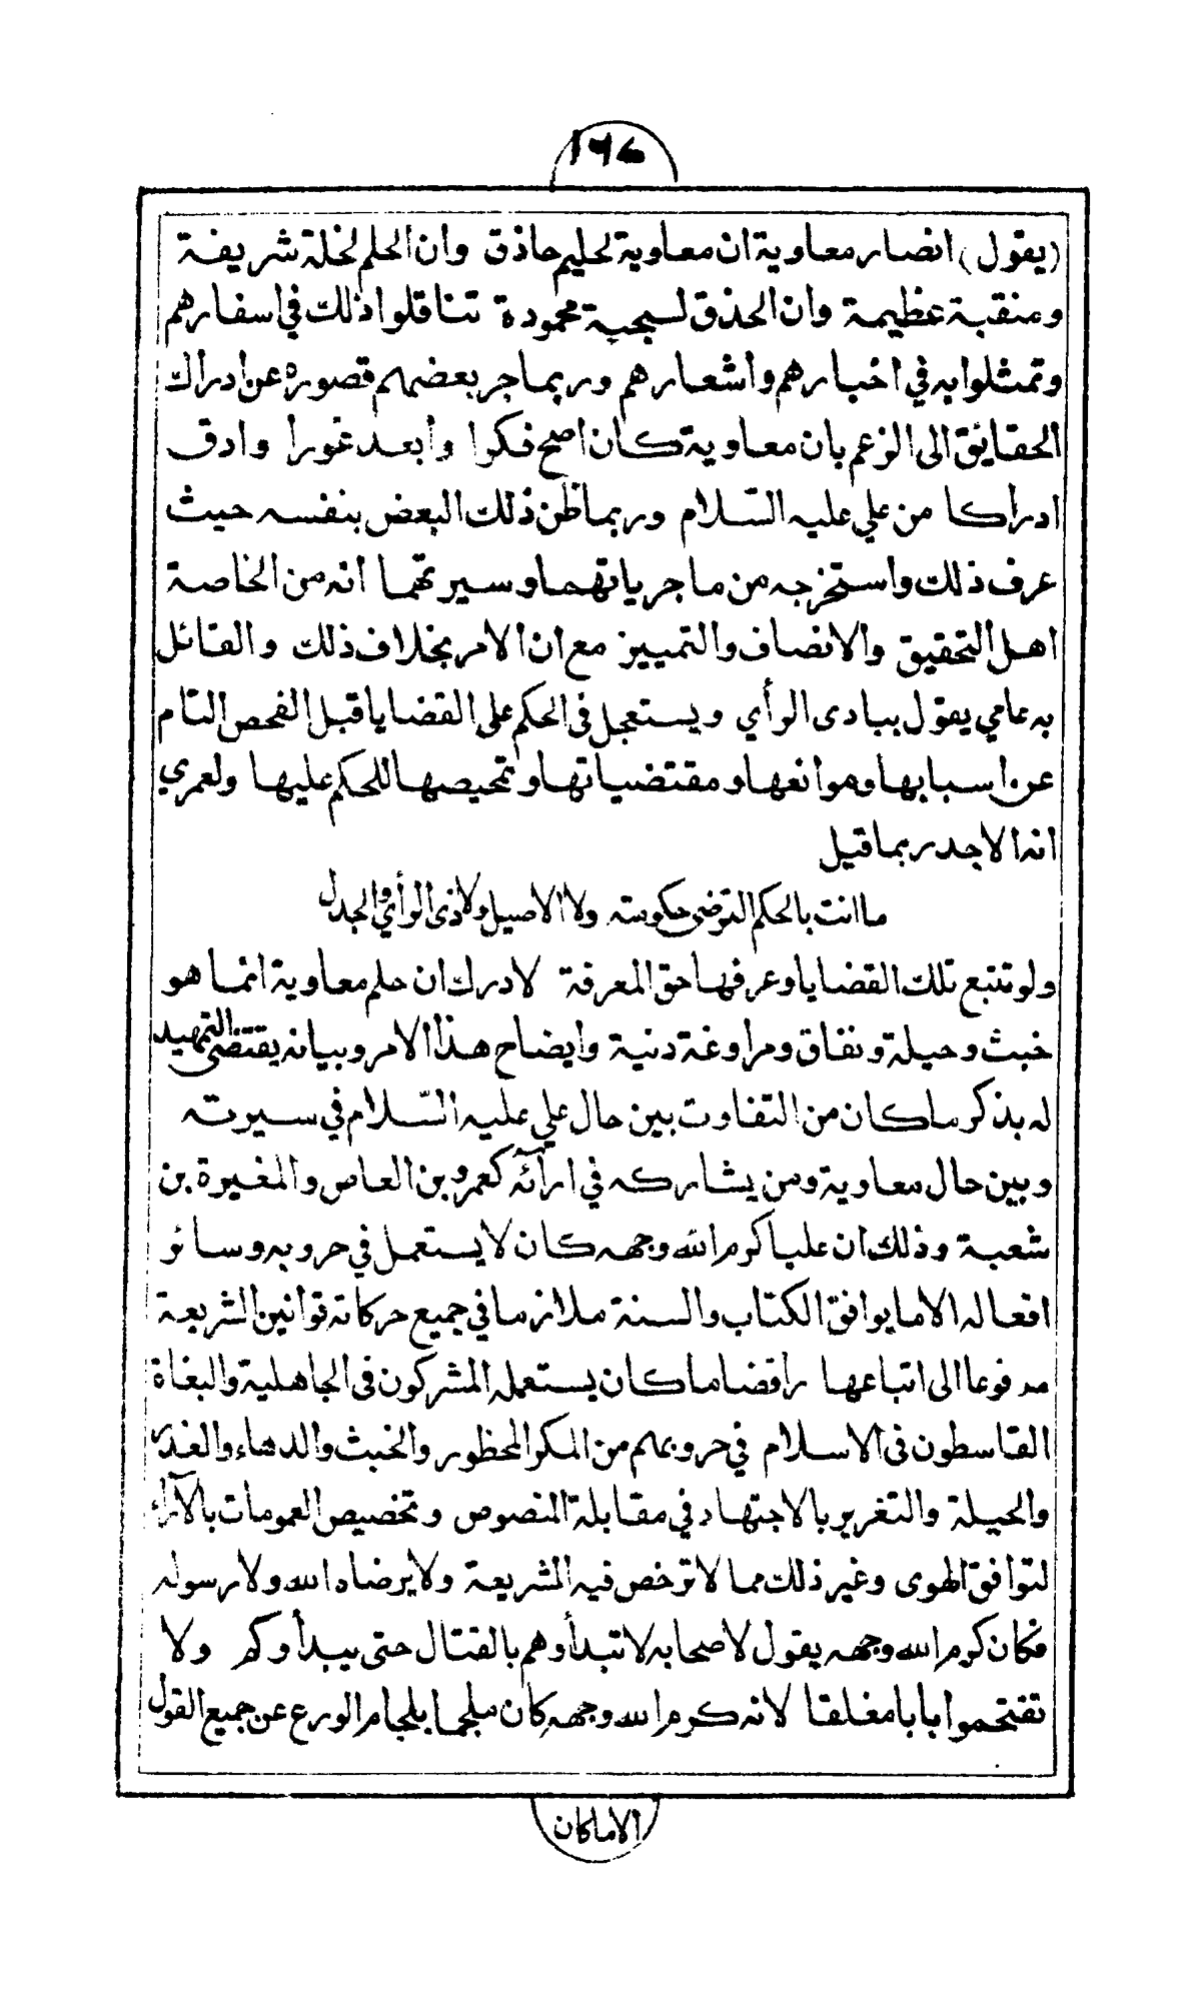 ١٦٤
(يقول) انصار معاوية ان معاوية لحليم حاذق وان الحلم لخلة شريفة
ومنقبة عظيمة وان الحذق لسجية محمودة تناقلوا ذلك في اسفارهم
وتمثلوا به في اخبارهم وأشعارهم وربما جر بعضهم قصوره عن ادراك
الحقايق الى الزعم بان معاوية كان اصح فكرا وأبعد غورا وادق
ادراكا من علي عليه السّلام وربما ظن ذلك البعض بنفسه حيث
عرف ذلك واستخرجه من ماجرياتهما وسيرتهما انه من الخاصة
اهل التحقيق والانصاف والتمييز مع ان الامر بخلاف ذلك والقائل
به عامي يقول ببادى الرأي ويستعجل فى الحكم على القضايا قبل الفحص التام
عن اسبابها وموانعها ومقتضياتها وتمحيصها للحكم عليها ولعمري
انه الاجدر بما قيل
ما انت بالحكم الترضى حكومته ولا الاصيل ولا ذى الرأي والجدل
ولو تتبع تلك القضايا وعرفها حق المعرفة لادرك ان حلم معاوية انما هو
خبث وحيلة ونفاق ومراوغة دنية وايضاح هذا الامر وبيانه يقتضى التمهيد
له بذكر ما كان من التفاوت بين حال علي عليه السّلام في سيرته
وبين حال معاوية ومن يشاركه في ارآئه كعمرو بن العاص والمغيرة بن
شعبة وذلك ان عليا كرم الله وجهه كان لا يستعمل في حروبه وسائر
افعاله الا ما يوافق الكتاب والسنة ملازما في جميع حركاته قوانين الشريعة
مدفوعا الى اتباعها رافضا ما كان يستعمله المشركون فى الجاهلية والبغاة
القاسطون فى الاسلام في حروبهم من المكر المحظور والخبث والدهاء والغدر
والحيلة والتغرير بالاجتهاد في مقابلة النصوص وتخصيص العمومات بالآراء
لتوافق الهوى وغير ذلك مما لا ترخص فيه الشريعة ولا يرضاه الله ولا رسوله
فكان كرم الله وجهه يقول لاصحابه لا تبدأوهم بالقتال حتى يبدأوكم ولا
تفتحموا بابا مغلقا لانه كرم الله وجهه كان ملجما بلجام الورع عن جميع القول
الاماكان